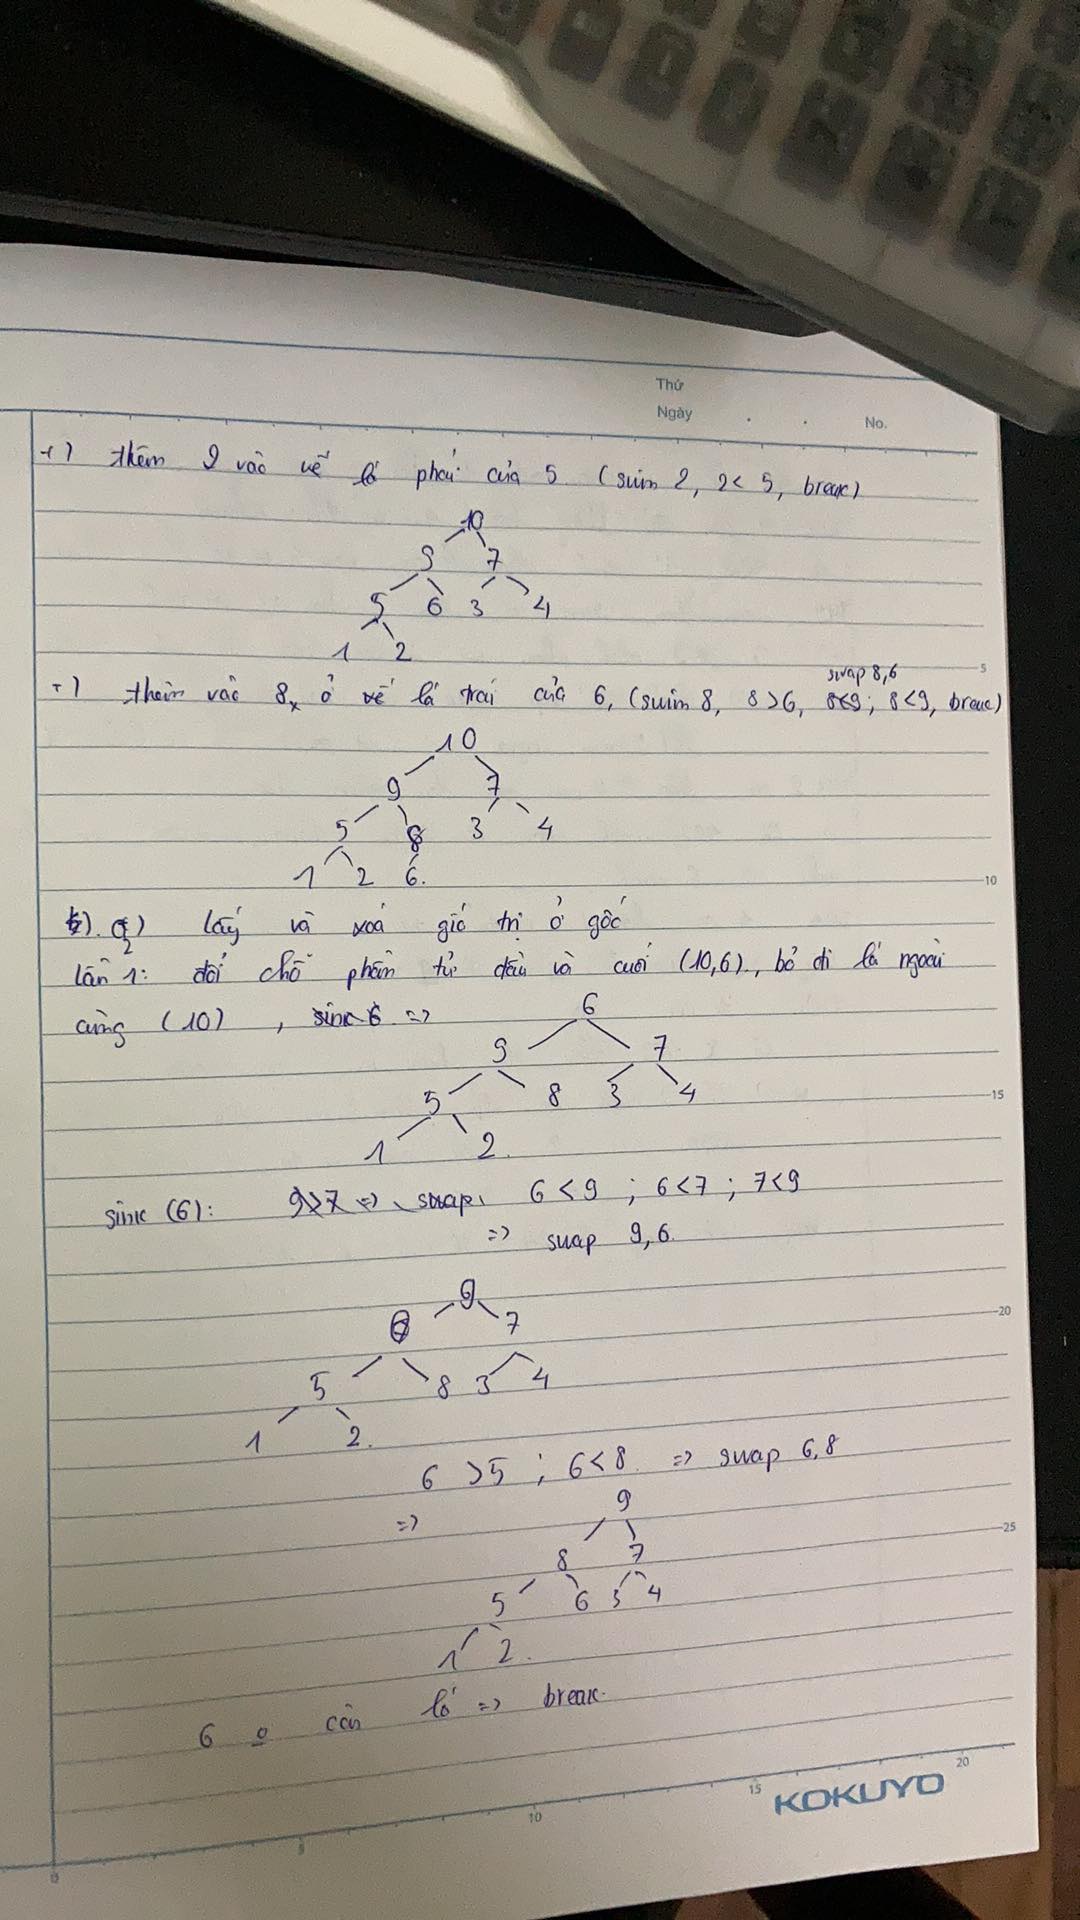 Thứ
Ngày . . No.
+) thêm 2 vào vế lá phải của 5 (swim 2, 2 < 5, break)
10
9 7
5 6 3 4
1 2
5
swap 8,6
+) thêm vào 8, ở vế lá trái của 6, (swim 8, 8 > 6, 8 < 9; 8 < 9, break)
10
9 7
5 8 3 4
1 2 6.
10
lấy và xoá giá trị ở gốc
lần 1: đổi chỗ phần tử đầu và cuối (10,6), bỏ đi lá ngoài
cùng (10) , sink 6 =>
6
9 7
5 8 3 4
15
1 2.
sink (6): 9 > 7 => swap, 6 < 9 ; 6 < 7 ; 7 < 9
=> swap 9,6.
9
20
6 7
5 8 3 4
1 2.
6 > 5 ; 6 < 8 => swap 6,8
=> 9
25
8 7
5 6 3 4
1 2.
6 còn lá => break.
20
15
KOKUYO
10
5
0